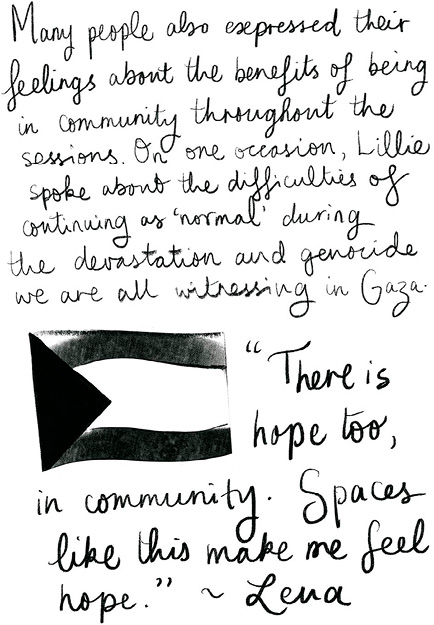 Many people also expressed their
feelings about the benefits of being
in community throughout the
sessions. On one occasion, Lillie
spoke about the difficulties of
continuing as 'normal' during
the devastation and genocide
we are all witnessing in Gaza.
"There is
hope too,
in community. Spaces
like this make me feel
hope." ~ Lena